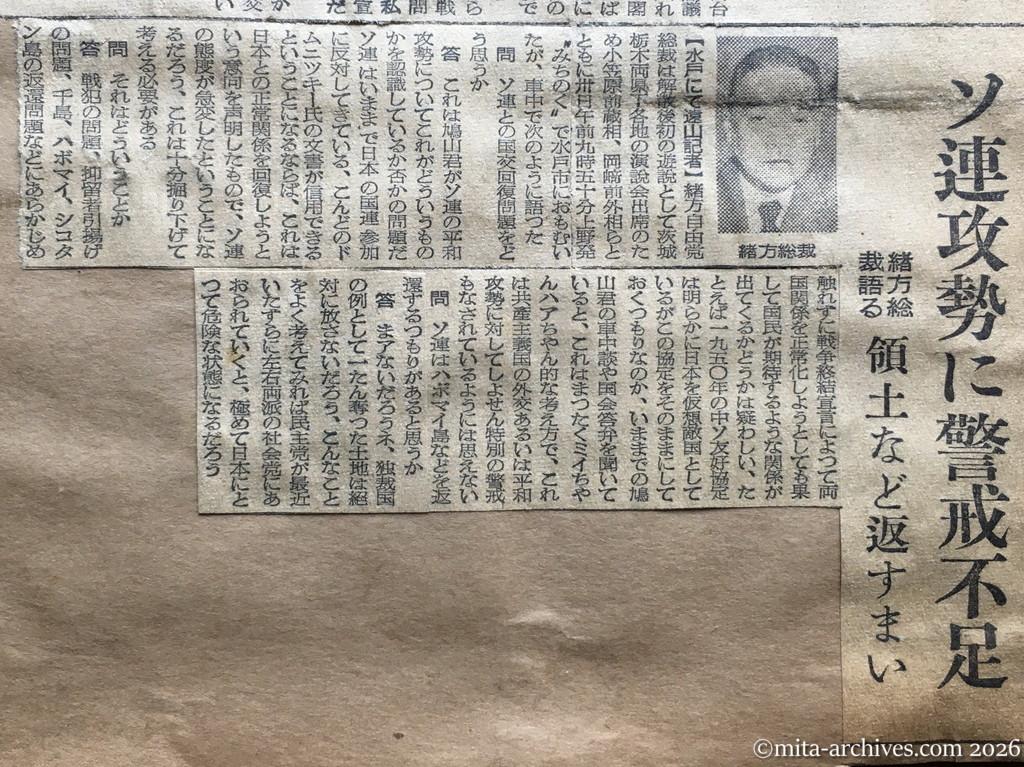 ソ連攻勢に警戒不足
緒方総
裁語る
領土など返すまい
緒方総裁
【水戸にて遠山記者】緒方自由党
総裁は解散後初の遊説として茨城
栃木両県下各地の演説会出席のた
め小笠原前蔵相、岡崎前外相らと
ともに卅日午前九時五十分上野発
〝みちのく〟で水戸市におもむい
たが、車中で次のように語った
問 ソ連との国交回復問題をど
う思うか
答 これは鳩山君がソ連の平和
攻勢についてこれがどういうもの
かを認識しているか否かの問題だ
ソ連はいままで日本の国連参加
に反対してきている、こんどのド
ムニツキー氏の文書が信用できる
ということになるならば、これは
日本との正常関係を回復しようと
いう意向を声明したもので、ソ連
の態度が急変したということにな
るだろう、これは十分掘り下げて
考える必要がある
問 それはどういうことか
答 戦犯の問題、抑留者引揚げ
の問題、千島、ハボマイ、シコタ
ン島の返還問題などにあらかじめ
触れずに戦争終結宣言によって両
国関係を正常化しようとしても果
して国民が期待するような関係が
出てくるかどうかは疑わしい、た
とえば一九五〇年の中ソ友好協定
は明らかに日本を仮想敵国として
いるがこの協定をそのままにして
おくつもりなのか、いままでの鳩
山君の車中談や国会答弁を聞いて
いると、これはまつたくミイちや
んハアちやん的な考え方で、これ
は共産主義国の外交あるいは平和
攻勢に対してしよせん特別の警戒
もなされているようには思えない
問 ソ連はハボマイ島などを返
還するつもりがあると思うか
答 まアないだろうネ、独裁国
の例として一たん奪つた土地は絶
対に放さないだろう、こんなこと
をよく考えてみれば民主党が最近
いたずらに左右両派の社会党にあ
おられていくと、極めて日本にと
つて危険な状態になるだろう
©mita-archives.com 2026